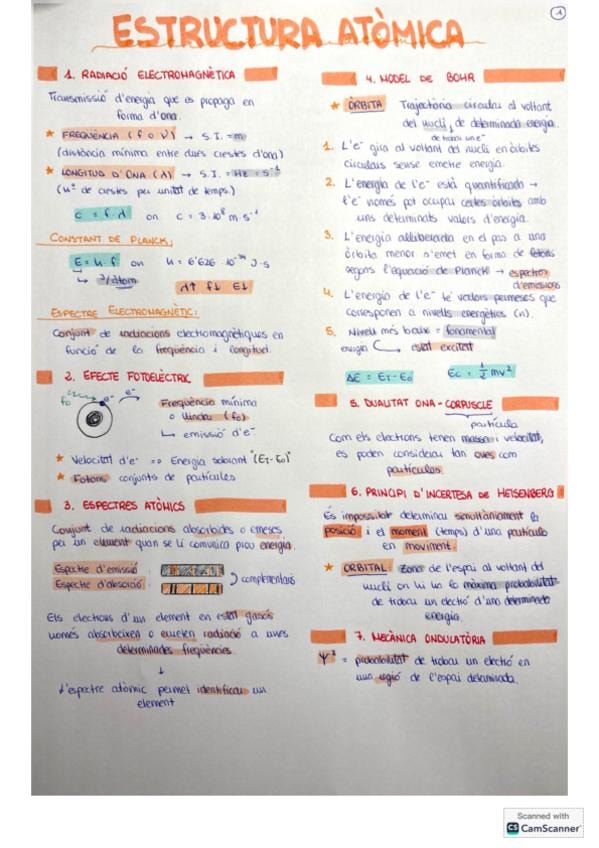 1
ESTRUCTURA ATÒMICA
1. RADIACIÓ ELECTROMAGNÈTICA
Transmissió d'energia que es propaga en
forma d'ona.
* FREQÜÈNCIA (f o ν) → S.I. = m
(distància mínima entre dues crestes d'ona)
* LONGITUD D'ONA (λ) → S.I. = Hz = s⁻¹
(nº de crestes per unitat de temps.)
c = f · λ on c = 3·10⁸ m·s⁻¹
CONSTANT DE PLANCK:
E = h · f on h = 6'626 · 10⁻³⁴ J·s
↳ J/àtom
λ↑ f↓ E↓
ESPECTRE ELECTROMAGNÈTIC:
Conjunt de radiacions electromagnètiques en
funció de la freqüència i longitud.
2. EFECTE FOTOELÈCTRIC
fo e⁻ e⁻
Freqüència mínima
o llindar (fo)
↳ emissió d'e⁻
* Velocitat d'e⁻ => Energia sobrant "(ET-E0)"
* Fotons: conjunto de partícules
3. ESPECTRES ATÒMICS
Conjunt de radiacions absorbides o emeses
per un element quan se li comunica prou energia.
Espectre d'emissió :
Espectre d'absorció :
complementaris
Els electrons d'un element en estat gasós
només absorbeixen o emeten radiació a unes
determinades freqüències.
↓
L'espectre atòmic permet identificar un
element
4. MODEL DE BOHR
* ÒRBITA Trajectòria circular al voltant
del nucli, de determinada energia.
de trobar un e⁻
1. L'e⁻ gira al voltant del nucli en òrbites
circulars sense emetre energia.
2. L'energia de l'e⁻ està quantificada →
l'e⁻ només pot ocupar certes òrbites amb
uns determinats valors d'energia.
3. L'energia alliberada en el pas a una
òrbita menor s'emet en forma de fotons
segons l'equació de Planck → espectros
d'emissions
4. L'energia de l'e⁻ té valors permesos que
corresponen a nivells energètics (n).
5. Nivells més baixa = fonamental
energia ↪ estat excitat
ΔE = ET - E0 Ec = 1/2 mv²
5. DUALITAT ONA-CORPUSCLE
partícula
Com els electrons tenen massa i velocitat,
es poden considerar tan ones com
partícules.
6. PRINCIPI D'INCERTESA DE HEISENBERG
És impossibitat determinar simultàniament la
posició i el moment (temps) d'una partícula
en moviment.
* ORBITAL: Zona de l'espai al voltant del
nucli on hi ha la màxima probabilitat
de trobar un electró d'una determinada
energia.
7. MECÀNICA ONDULATÒRIA
Ψ² = probabilitat de trobar un electró en
una regió de l'espai determinada.
Scanned with
CS CamScanner